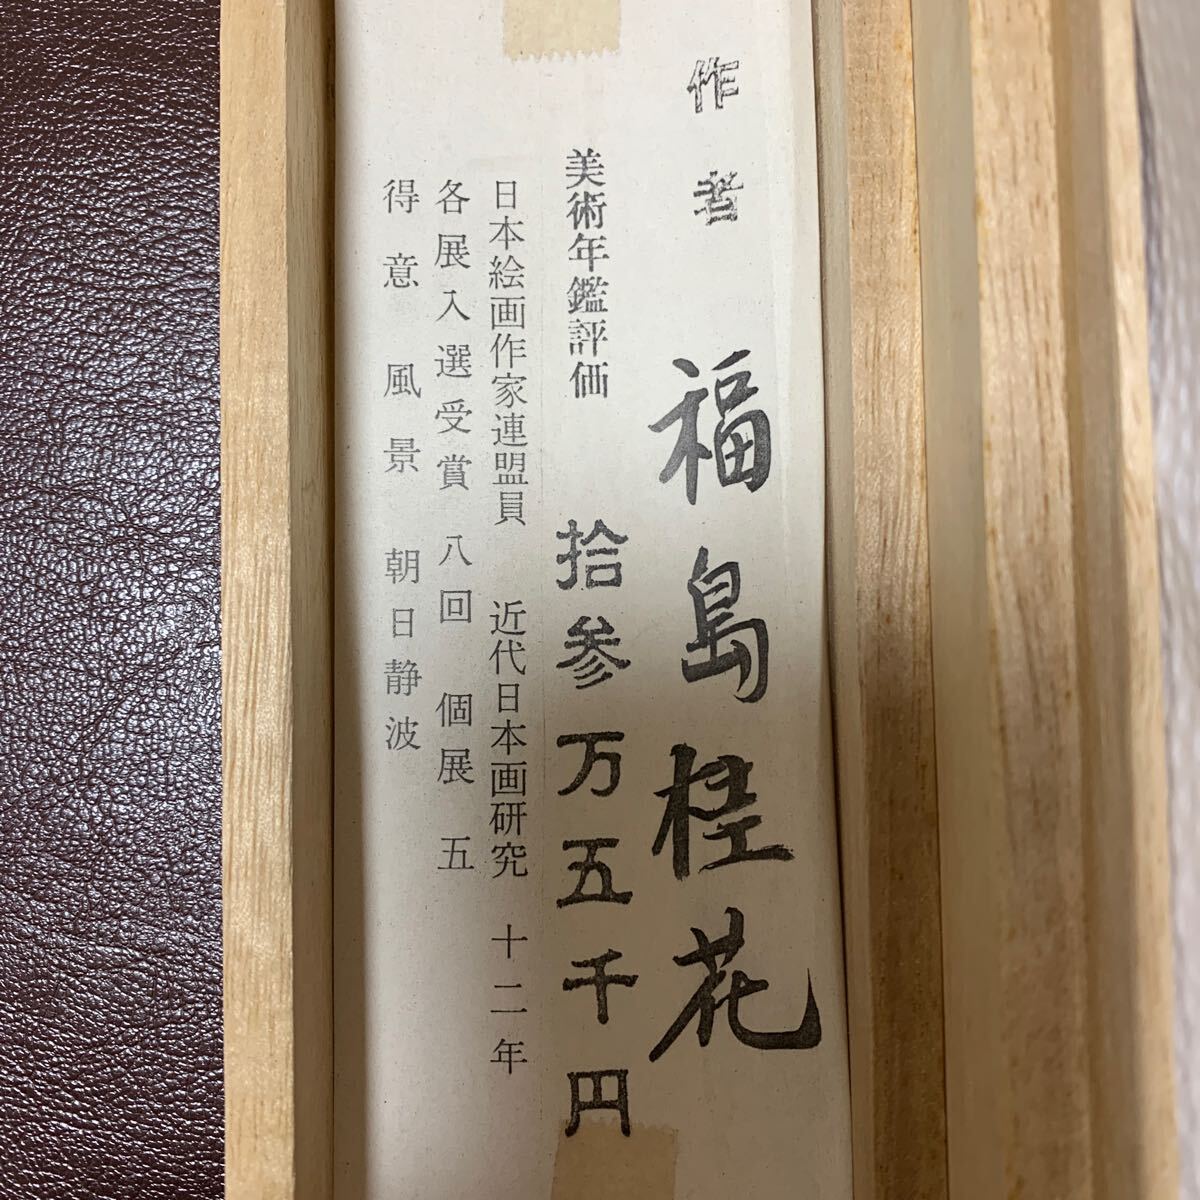 作者 福島桂花
美術年鑑評価 拾参万五千円
日本絵画作家連盟員 近代日本画研究 十二年
各展入選受賞 八回 個展 五
得意 風景 朝日静波